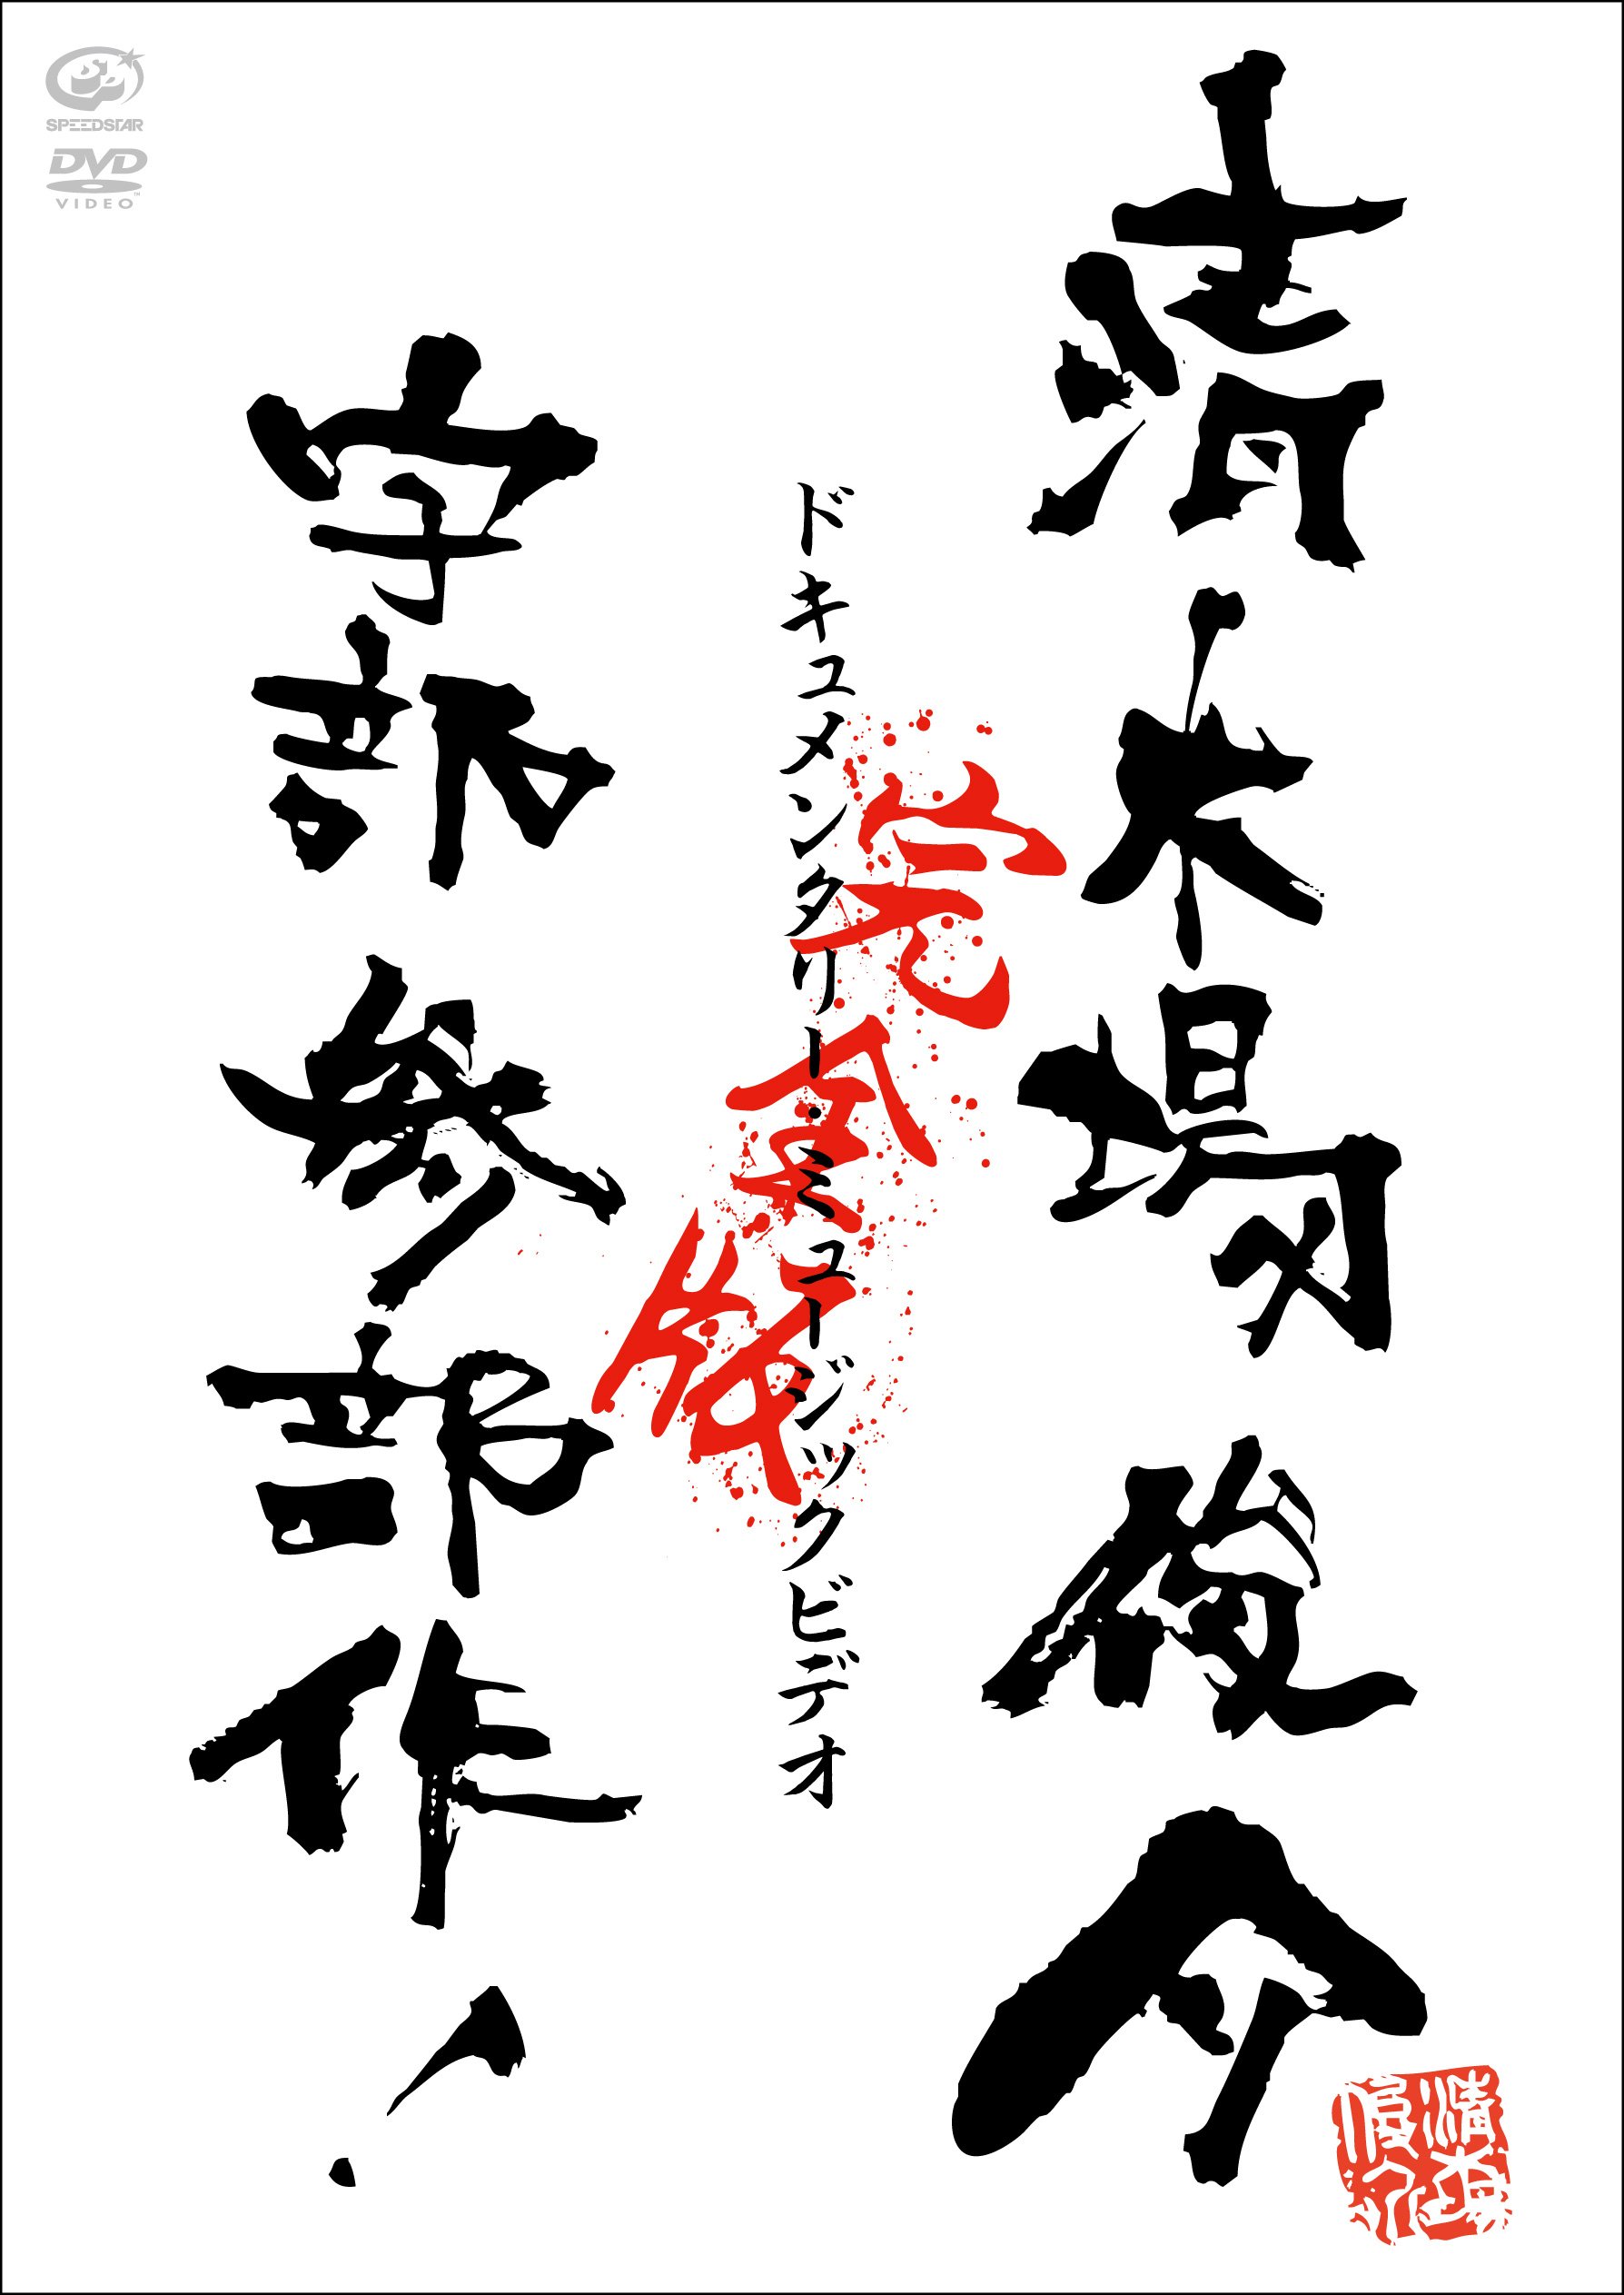 清木場俊介
ドキュメンタリー・ミュージックビデオ
完全版
宇部参部作！
SPEEDSTAR
DVD
VIDEO
TM
清木場
俊介